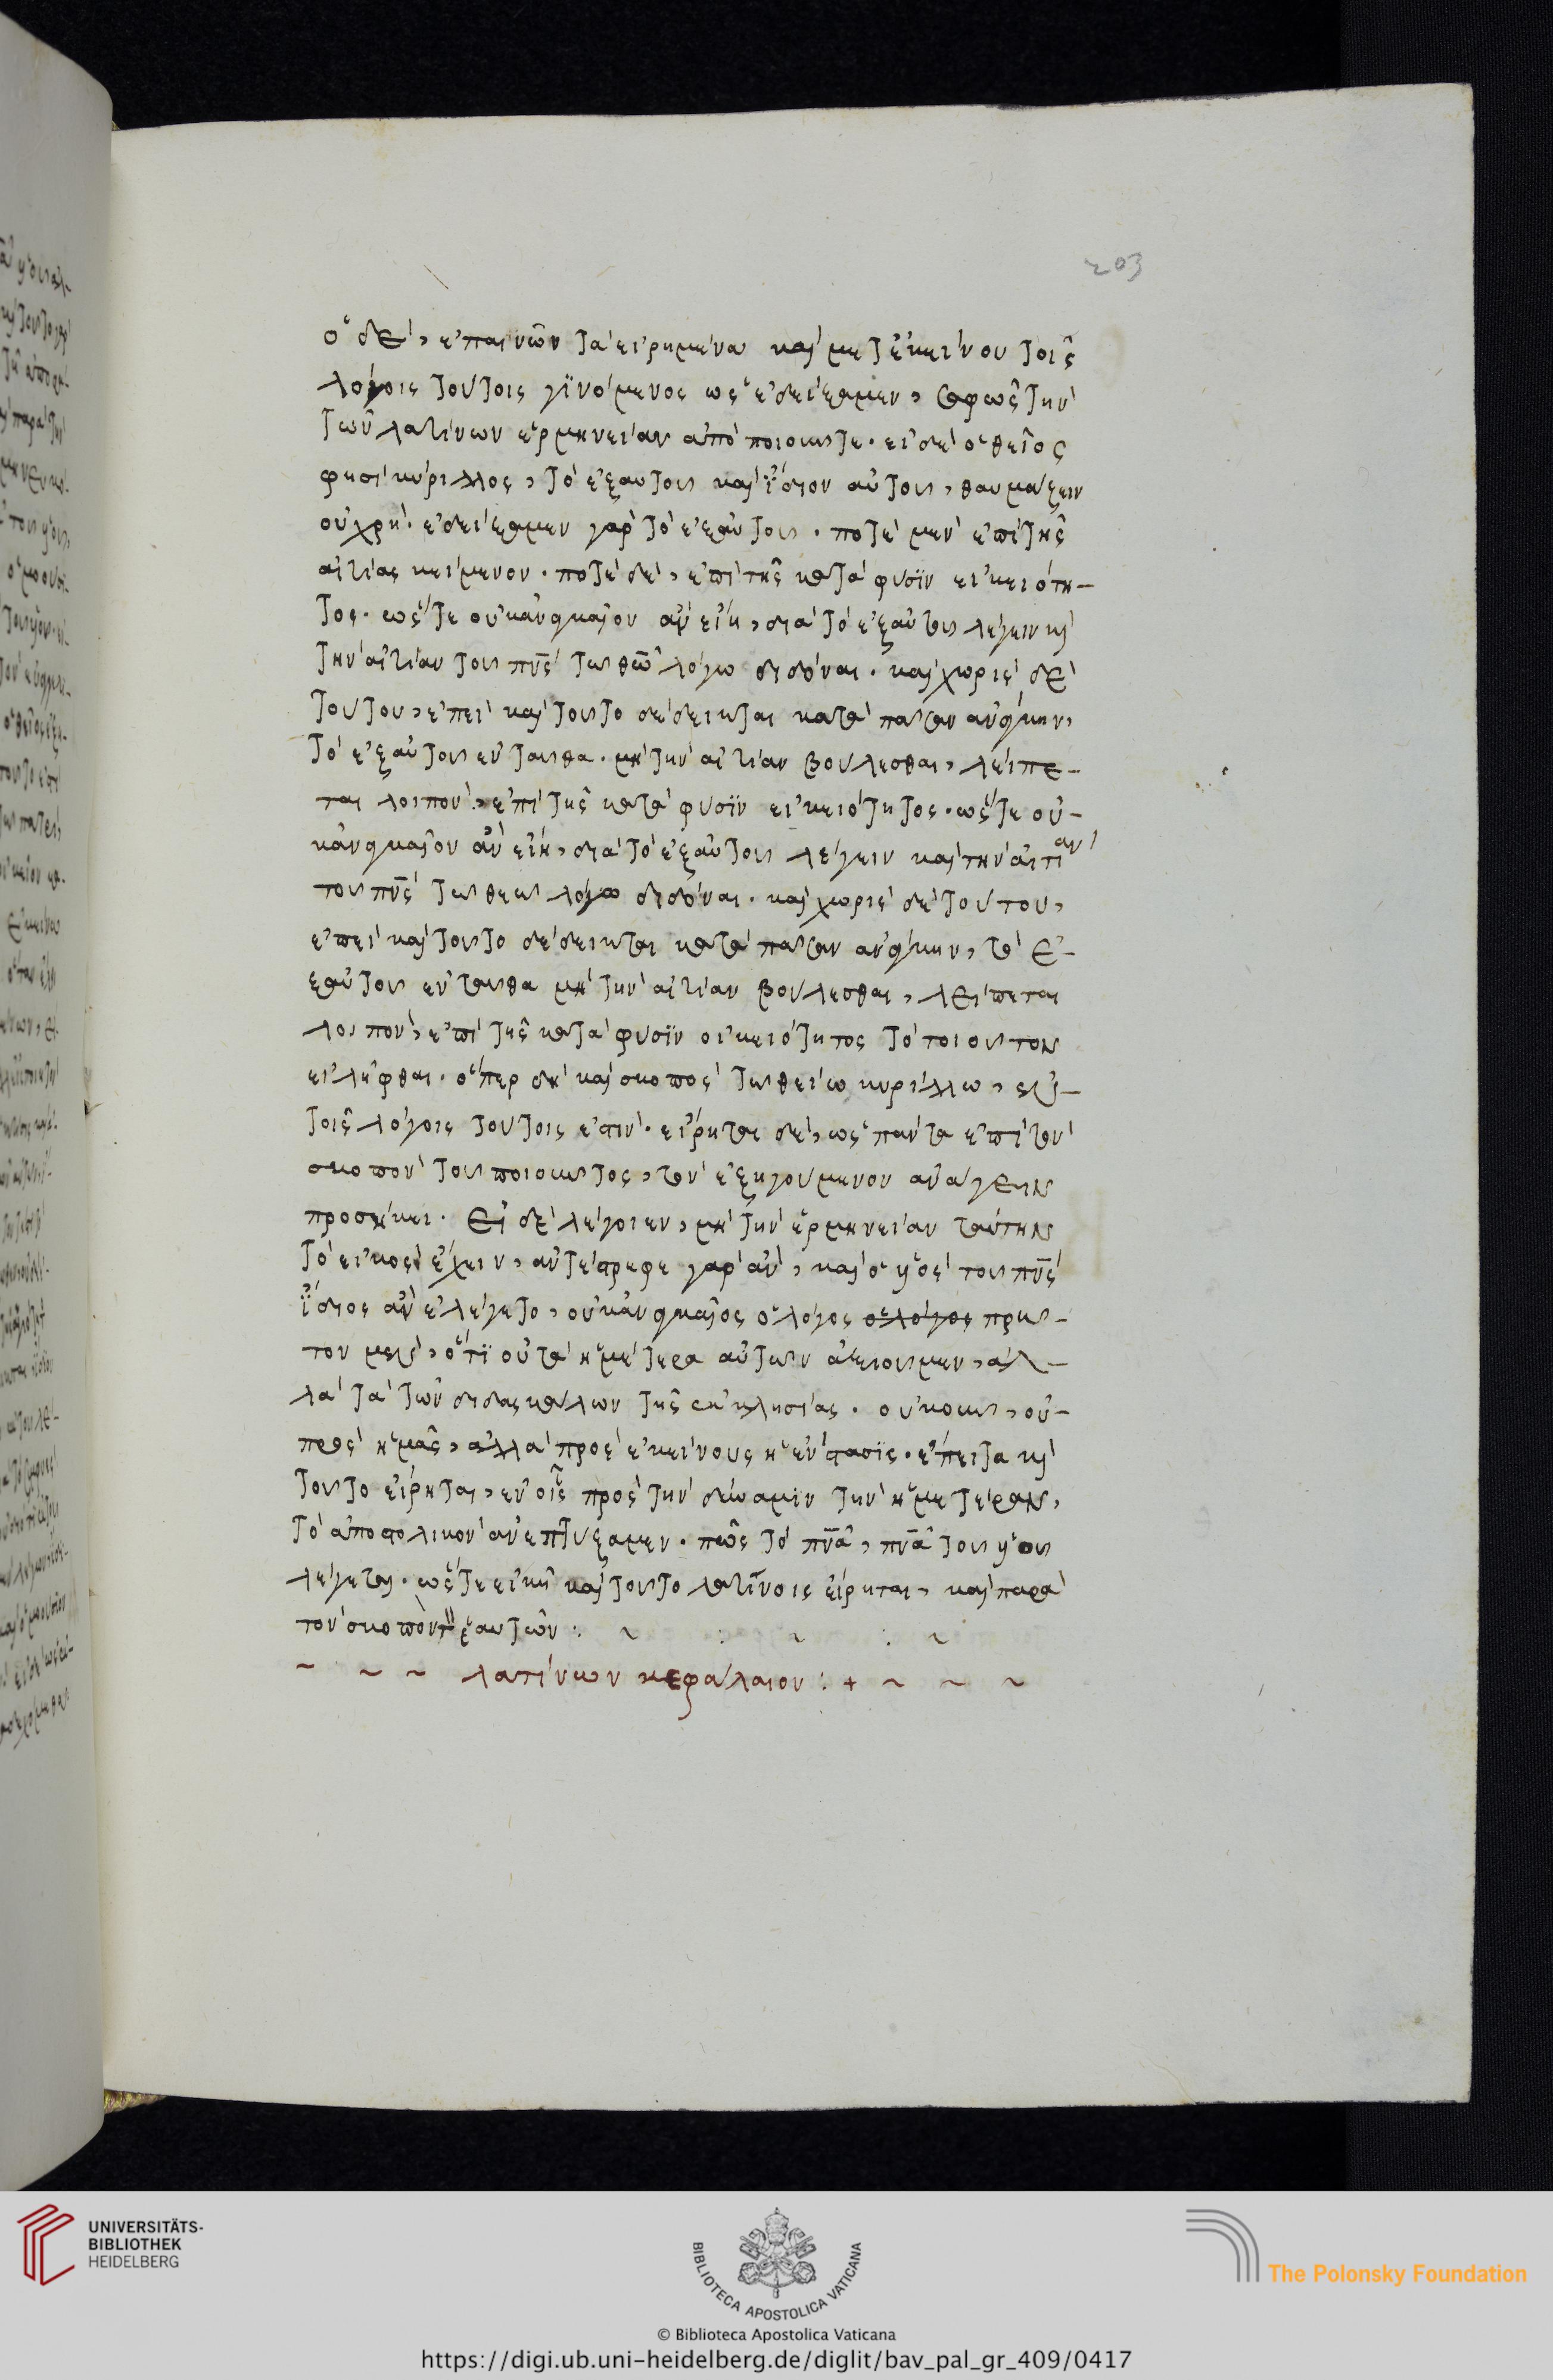 203
ὁ δὲ, ἐπαινῶν τὰ εἰρημένα καὶ μετ' ἐκείνου τοῖς
λόγοις τούτοις γϊνόμενος ὡς ἐδείξαμεν, σαφῶς τὴν
τῶν λατίνων ἑρμηνείαν ἀπόποιουτε. εἰ δὲ ὁ θεῖος
φησὶ κύριλλος, τὸ ἐξ αὐτοῦ καὶ ἴδιον αὐτοῦ, θαυμάζειν
οὐ χρή. ἐδείξαμεν γὰρ τὸ ἐξ αὐτοῦ. ποτὲ μὲν ἐπὶ τῆς
αἰτίας κείμενον. ποτὲ δὲ, ἐπὶ τῆς κατὰ φύσϊν εἰκειότη-
τος. ὥς τε οὐκ ἀναγκαῖον ἂν εἴη, διὰ τὸ ἐξ αὐτοῦ λέγειν κὶ
τὴν αἰτίαν τοῦ πν̅ς τῶ θω̅ λόγω διδόναι. καὶ χωρὶς δὲ
τούτου, ἐπεὶ καὶ τοῦτο δέδεικται κατὰ πᾶσαν ἀνάγκην,
τὸ ἐξ αὐτοῦ ἐνταῦθα. μὴ τὴν αἰτίαν βούλεσθαι, λείπε-
ται λοιπὸν, ἐπὶ τῆς κατὰ φύσϊν εἰκειότητος. ὥς τε οὐ-
κ ἀναγκαῖον ἂν εἴη, διὰ τὸ ἐξ αὐτοῦ λέγειν καὶ τὴν αἰτίαν
τοῦ πν̅ς τῶ θεῶ λόγω διδόναι. καὶ χωρὶς δὲ τούτου,
ἐπεὶ καὶ τοῦτο δέδεικται κατὰ πᾶσαν ἀνάγκην, τὸ ἐ-
ξ αὐτοῦ ἐνταῦθα μὴ τὴν αἰτίαν βούλεσθαι, λείπεται
λοιπὸν, ἐπὶ τῆς κατὰ φύσϊν οἰκειότητος τὸ τοιοῦτον
εἰλῆφθαι. ὅπερ δὴ καὶ σκοπὸς τῶ θείω κυρίλλω,
τοῖς λόγοις τούτοις ἐστιν. εἴρηται δὲ, ὡς πάντα ἐπὶ τὸν
σκοπὸν τοῦ ποιοῦντος, τὸν ἐξηγούμενον ἀνάγειν
προσήκει. Εἰ δὲ λέγοιεν, μὴ τὴν ἑρμηνείαν ταύτην
τὸ εἰκὸς ἔχειν, ἀντέστρεφε γὰρ ἂν, καὶ ὁ υ̅ὸς τοῦ πν̅ς
ἴδιος ἂν ἐλέγετο, οὐκ ἀναγκαῖος ὁ λόγος ὁ λόγος πρῶ-
τον μὲν, ὅτϊ οὐ τὰ ἡμέτερα αὐτῶν ἀξιοῦμεν, ἀλ-
λὰ τὰ τῶν διδασκάλων τῆς ἐκκλησίας. οὐκοῦν, οὐ-
πρὸς ἡμᾶς, ἀλλὰ πρὸς ἐκείνους ἡ ἔνστασϊς. ἔπειτα κὶ
τοῦτο εἴρηται, ἐν οἷς πρὸς τὴν δύναμϊν τὴν ἡμετέραν,
τὸ ἀποστολικὸν ἀνεπτύξαμεν. πῶς τὸ πν̅α, πν̅α τοῦ υ̅ου
λέγεται. ὥς τε εἰκῆ καὶ τοῦτο λατίνοις εἴρηται, καὶ παρὰ
τὸν σκοπὸν τ ἑαυτῶν : ~ : ~ : ~
~ ~ ~ λατίνων κεφάλαιον : + ~ ~ ~
UNIVERSITÄTS-
BIBLIOTHEK
HEIDELBERG
BIBLIOTECA APOSTOLICA VATICANA
The Polonsky Foundation
© Biblioteca Apostolica Vaticana
https://digi.ub.uni-heidelberg.de/diglit/bav_pal_gr_409/0417